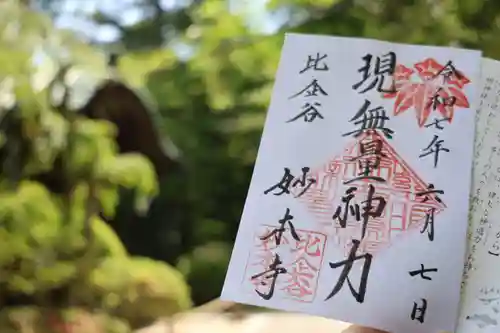 令和七年六月七日
現無量神力
比企谷
妙本寺